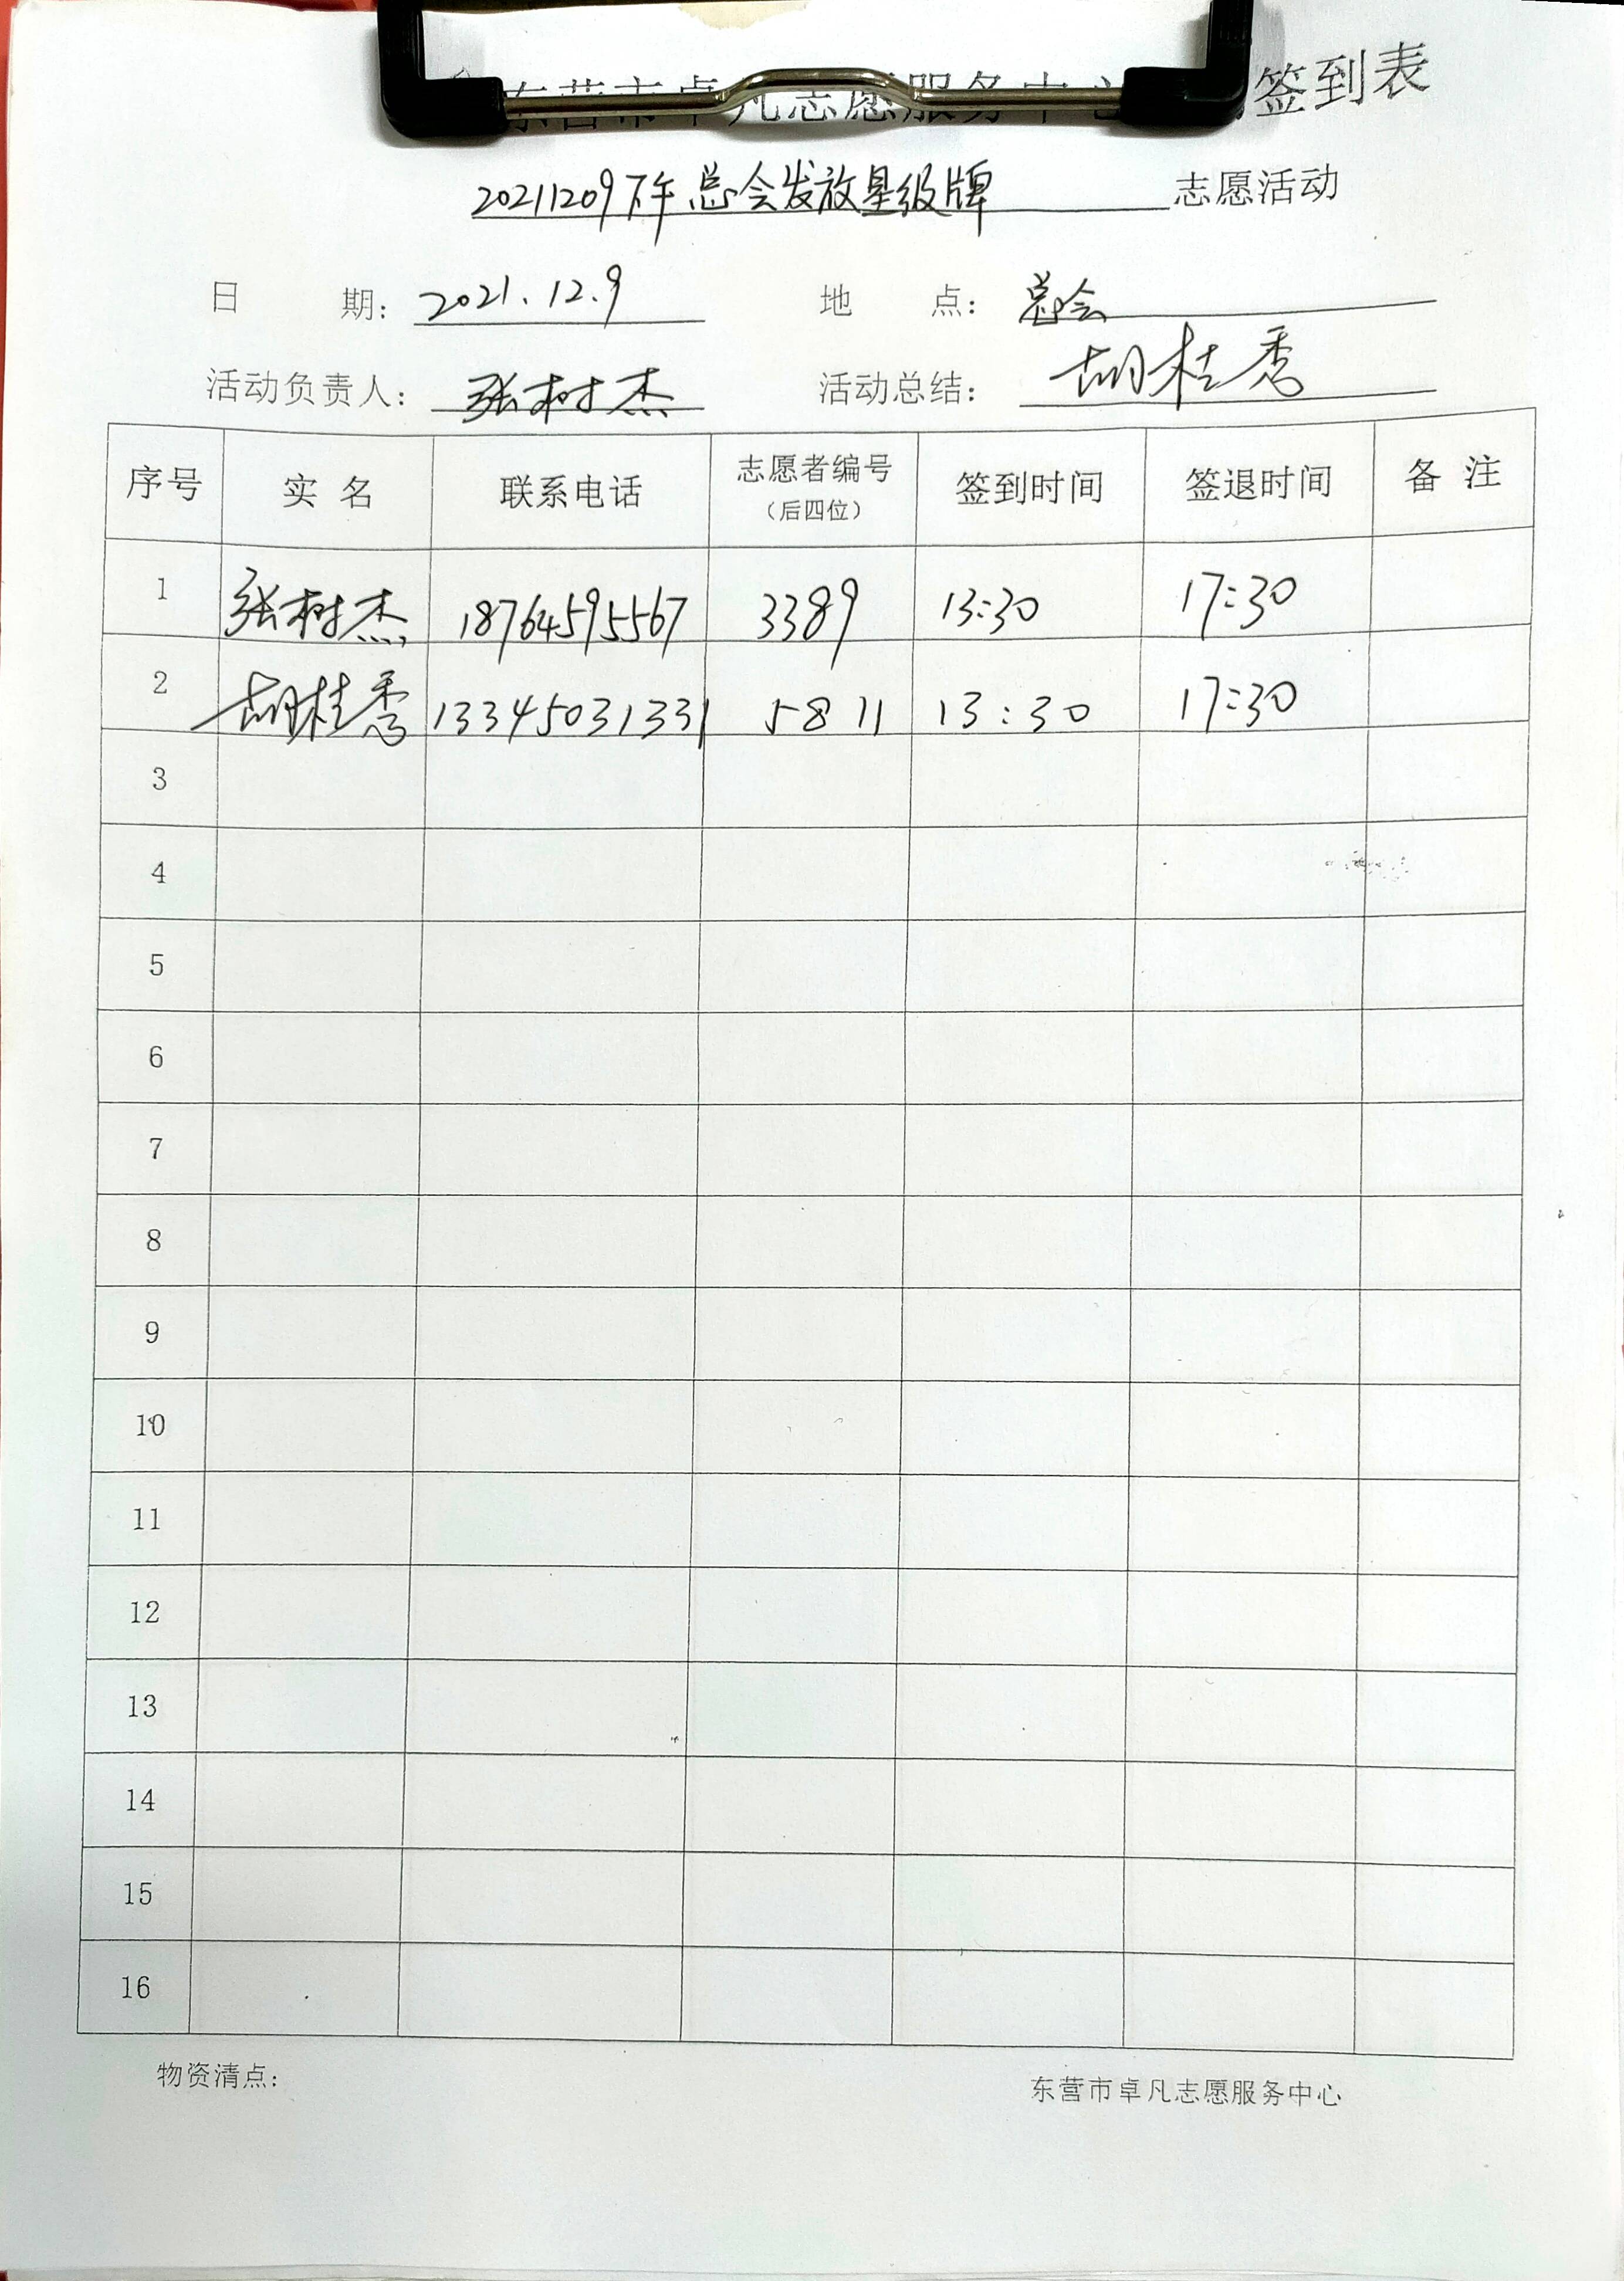 东营市卓凡志愿服务中心 签到表
20211209下午总会发放星级牌 志愿活动
日 期: 2021.12.9 地 点: 总会
活动负责人: 张树杰 活动总结: 胡桂秀
序号 实名 联系电话 志愿者编号（后四位） 签到时间 签退时间 备注
1 张树杰 18764595567 3389 13:30 17:30
2 胡桂秀 13345031331 5811 13:30 17:30
3
4
5
6
7
8
9
10
11
12
13
14
15
16
物资清点: 东营市卓凡志愿服务中心